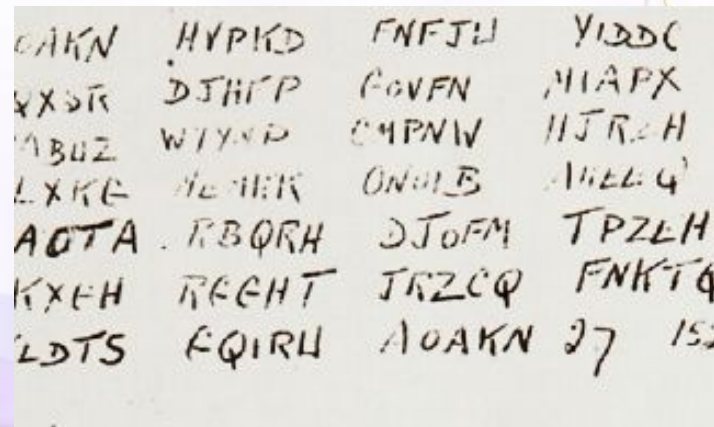 OAKN HVPKD FNFJU YIDDC
QXSR DJHFP GOVFN MIAPX
ABUZ WYYNP CMPNW HJRZH
LXKG ONOIB
AOTA RBQRH DJOFM TPZEH
KXGH RGGHT JRZCQ FNKTQ
LDTS GQIRU AOAKN 27 152